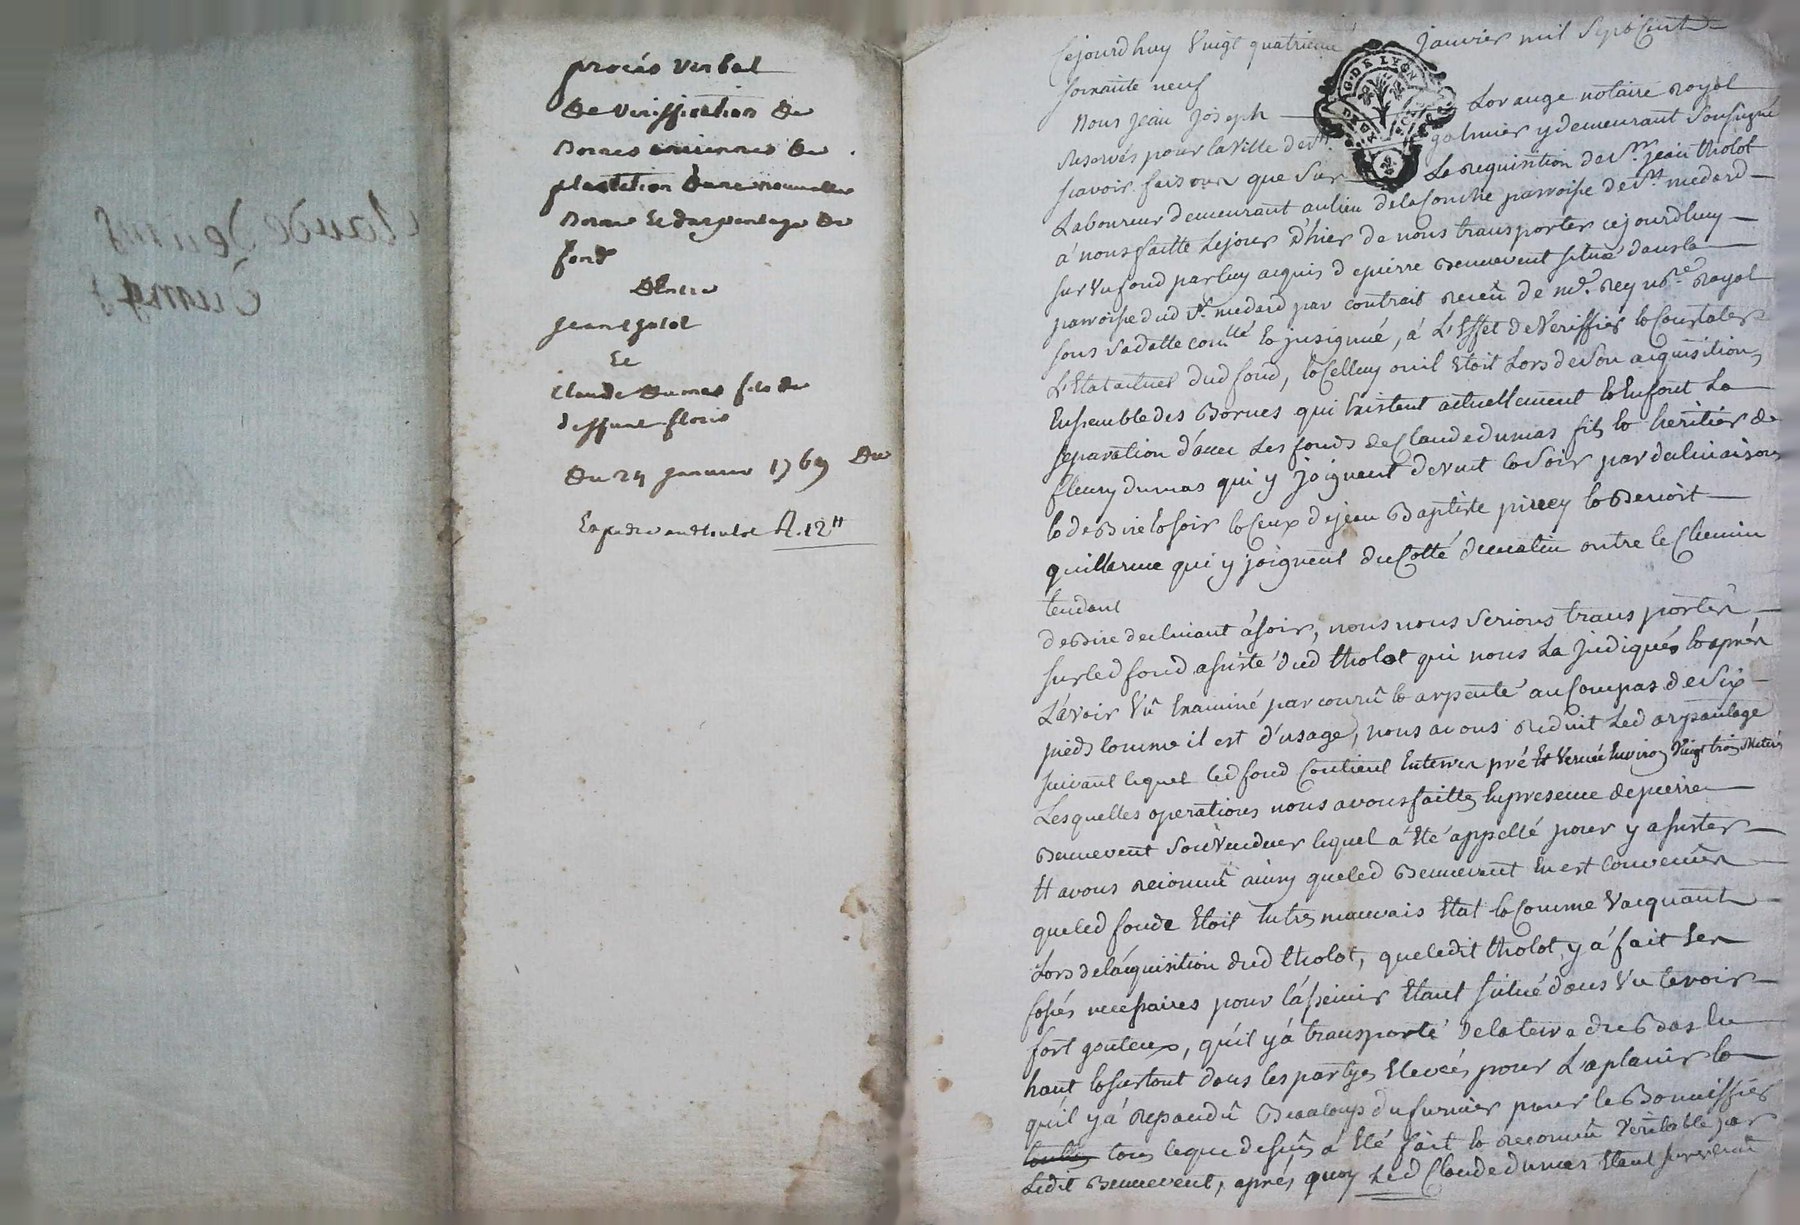 procés verbal
de veriffication de
Bornes anciennes de
plantation dune nouvelle
Borne et darpentage de
fond
Entre
jean tholot
Et
Claude Dumas fils de
deffunt fleuri
Du 24 janvier 1769 Du
Expedié audt tholot R. 12tt
Cejourdhuy vingt quatrieme janvier mil sept Cent
soixante neuf
Nous jean joseph Lorange notaire royal
reservés pour la ville de St. galmier y demeurant soussigné
scavoir faisons que sur La requisition de Sr. jean tholot
Laboureur demeurant au lieu de la Conche parroisse de St. medard
à nous faitte Lejour d'hier de nous transporter cejourdhuy
sur un fond par luy acquis de pierre Bennevent situé dans la
parroisse dud St. medard par contrait receû de Me. Rey nore. Royal
sous sa datte comtlé & insignué, à L'Effet de veriffier & Constater
L'Etat actuel dud fond, & Celluy ou il Etoit Lors de son acquisition,
Ensemble des Bornes qui Existent actuellement & En font La
separation d'avec Les fonds de Claude dumas fils & heritier de
fleury dumas qui y joignent de vent & soir par declinaison
& de Bize & soir & Ceux de jean Baptiste pirrey & Benoit
guillerme qui y joignent du Cotté de matin outre le Chemin
tendant
de Bize declinant à soir, nous nous serions transporter
sur led fond assisté dud tholot qui nous La jndiqués & aprés
L'avoir vû Examiné parcourrû & arpenté au Compas de Six
pieds comme il est d'usage, nous avons reduit Led arpantage
suivant lequel led fond Contient En terre pré Et Verné Environ Vingt trois Metérs
Lesquelles operations nous avons faittes En presence de pierre
Bennevent son vendeur lequel a Eté appellé pour y assister
Et avons reconnû ainsy que led Bennevent En est Convenû
que led fonds Etoit En très mauvais Etat & Comme Vacquant
Lors de l'acquisition dud tholot, que ledit tholot y a fait Les
fossés necessaires pour l'assainir Etant situé dans un terroir
fort gouteux, qu'il y a transporté de la terre du Bas En
haut & surtout dans les partyes Elevées pour L'aplanir &
qu'il y a repandû Beaucoup du fumier pour le Bonniffier
tous leque dessus a Eté fait & reconnû veritable par
Ledit Bennevent, aprés quoy Led Claude dumas Etant survenû